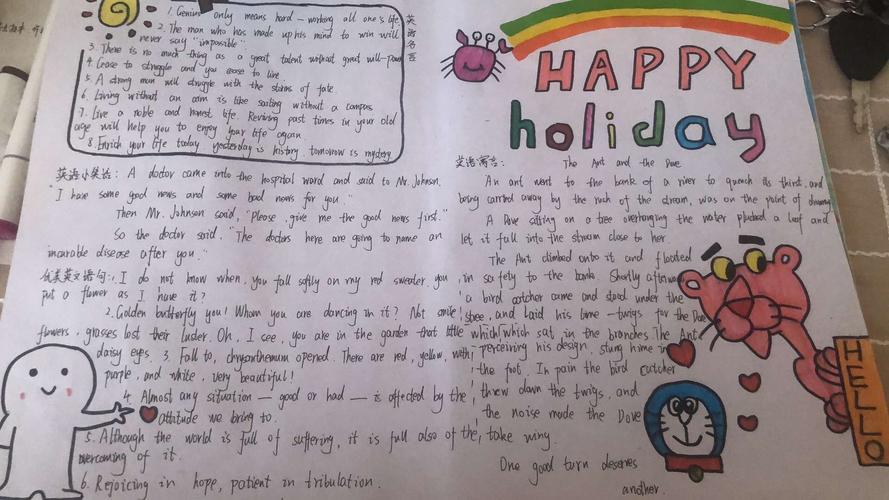 英语名言
1. Genius only means hard-working all one's life.
2. The man who has made up his mind to win will
never say "impossible".
3. There is no such thing as a great talent without great will-power
4. Cease to struggle and you cease to live
5. A strong man will struggle with the storms of fate.
6. Living without an aim is like sailing without a compas
7. Live a noble and honest life. Reviving past times in your old
age will help you to enjoy your life again.
8. Enrich your life today, yesterday is history. tomorrow is mystery
英语小笑话: A doctor came into the hospital ward and said to Mr. Johnson.
"I have some good news and some bad news for you."
Then Mr. Johnson said, "Please, give me the good news first."
So the doctor said. "The doctors here are going to name an
incurable disease after you."
优美英文语句: I do not know when, you fall softly on my red sweater. you
put a flower as I have it?
2. Golden butterfly you! Whom you are dancing in it? Not smile
flowers, grasses lost their luster. Oh, I see, you are in the garden that little
daisy eyes. 3. Fall to, chrysanthemum opened. There are red, yellow, with
purple, and white, very beautiful!
4. Almost any situation — good or bad — is affected by the
attitude we bring to.
5. Although the world is full of suffering, it is full also of the
overcoming of it.
6. Rejoicing in hope, patient in tribulation.
HAPPY
holiday
英语寓言: The Ant and the Dove
An ant went to the bank of a river to quench its thirst, and
being carried away by the rush of the stream, was on the point of drowning
A Dove sitting on a tree overhanging the water plucked a leaf and
let it fall into the stream close to her.
The Ant climbed onto it and floated
in safety to the bank. Shortly afterwards
a bird catcher came and stood under the
tree, and laid his lime-twigs for the Dove
which which sat in the branches. The Ant
perceiving his design, stung him in
the foot. In pain the bird catcher
threw down the twigs, and
the noise made the Dove
take wing.
One good turn deserves
another.
HELLO